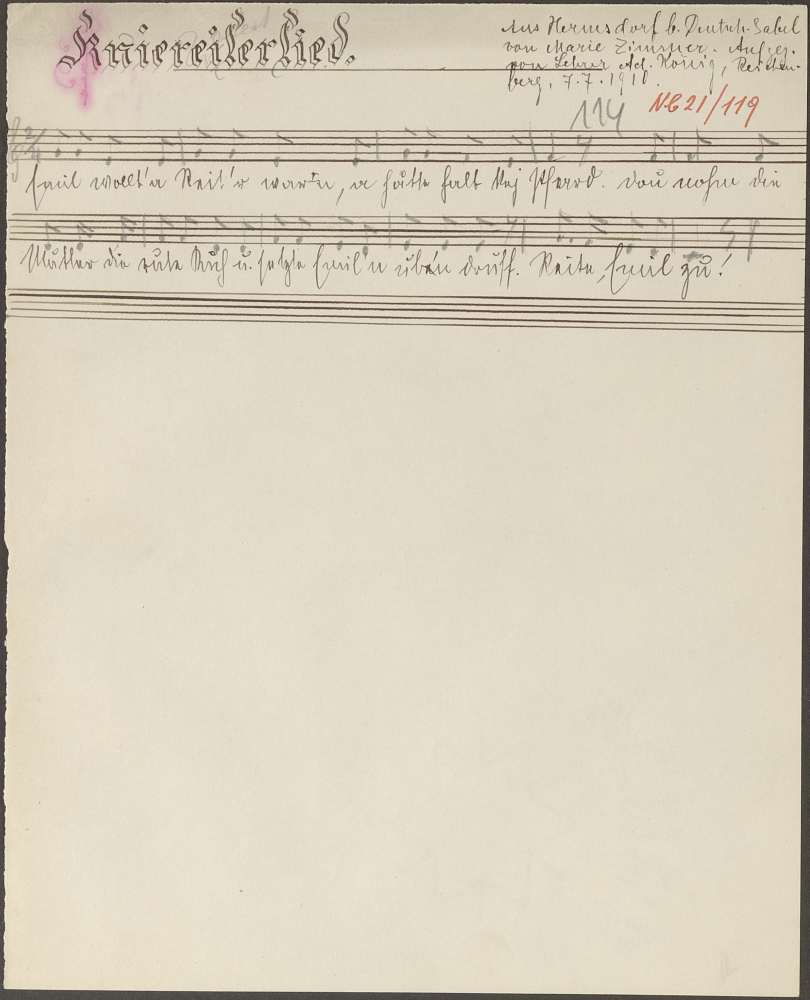 Kniereiterlied.
Aus Hermsdorf b. Deutsch-Gabel
von Marie Zimmer. Aufgez.
von Lehrer Ad. König, Reichen-
berg, 7.7.1910.
114
NB 21/119
2/4
Emil wollt'a Reit'r war'n, a hatte halt kej Pfard. Dou nohm die
Mutter die rute Kuh u. setzte Emil'n uben druff. Reite, Emil zu!